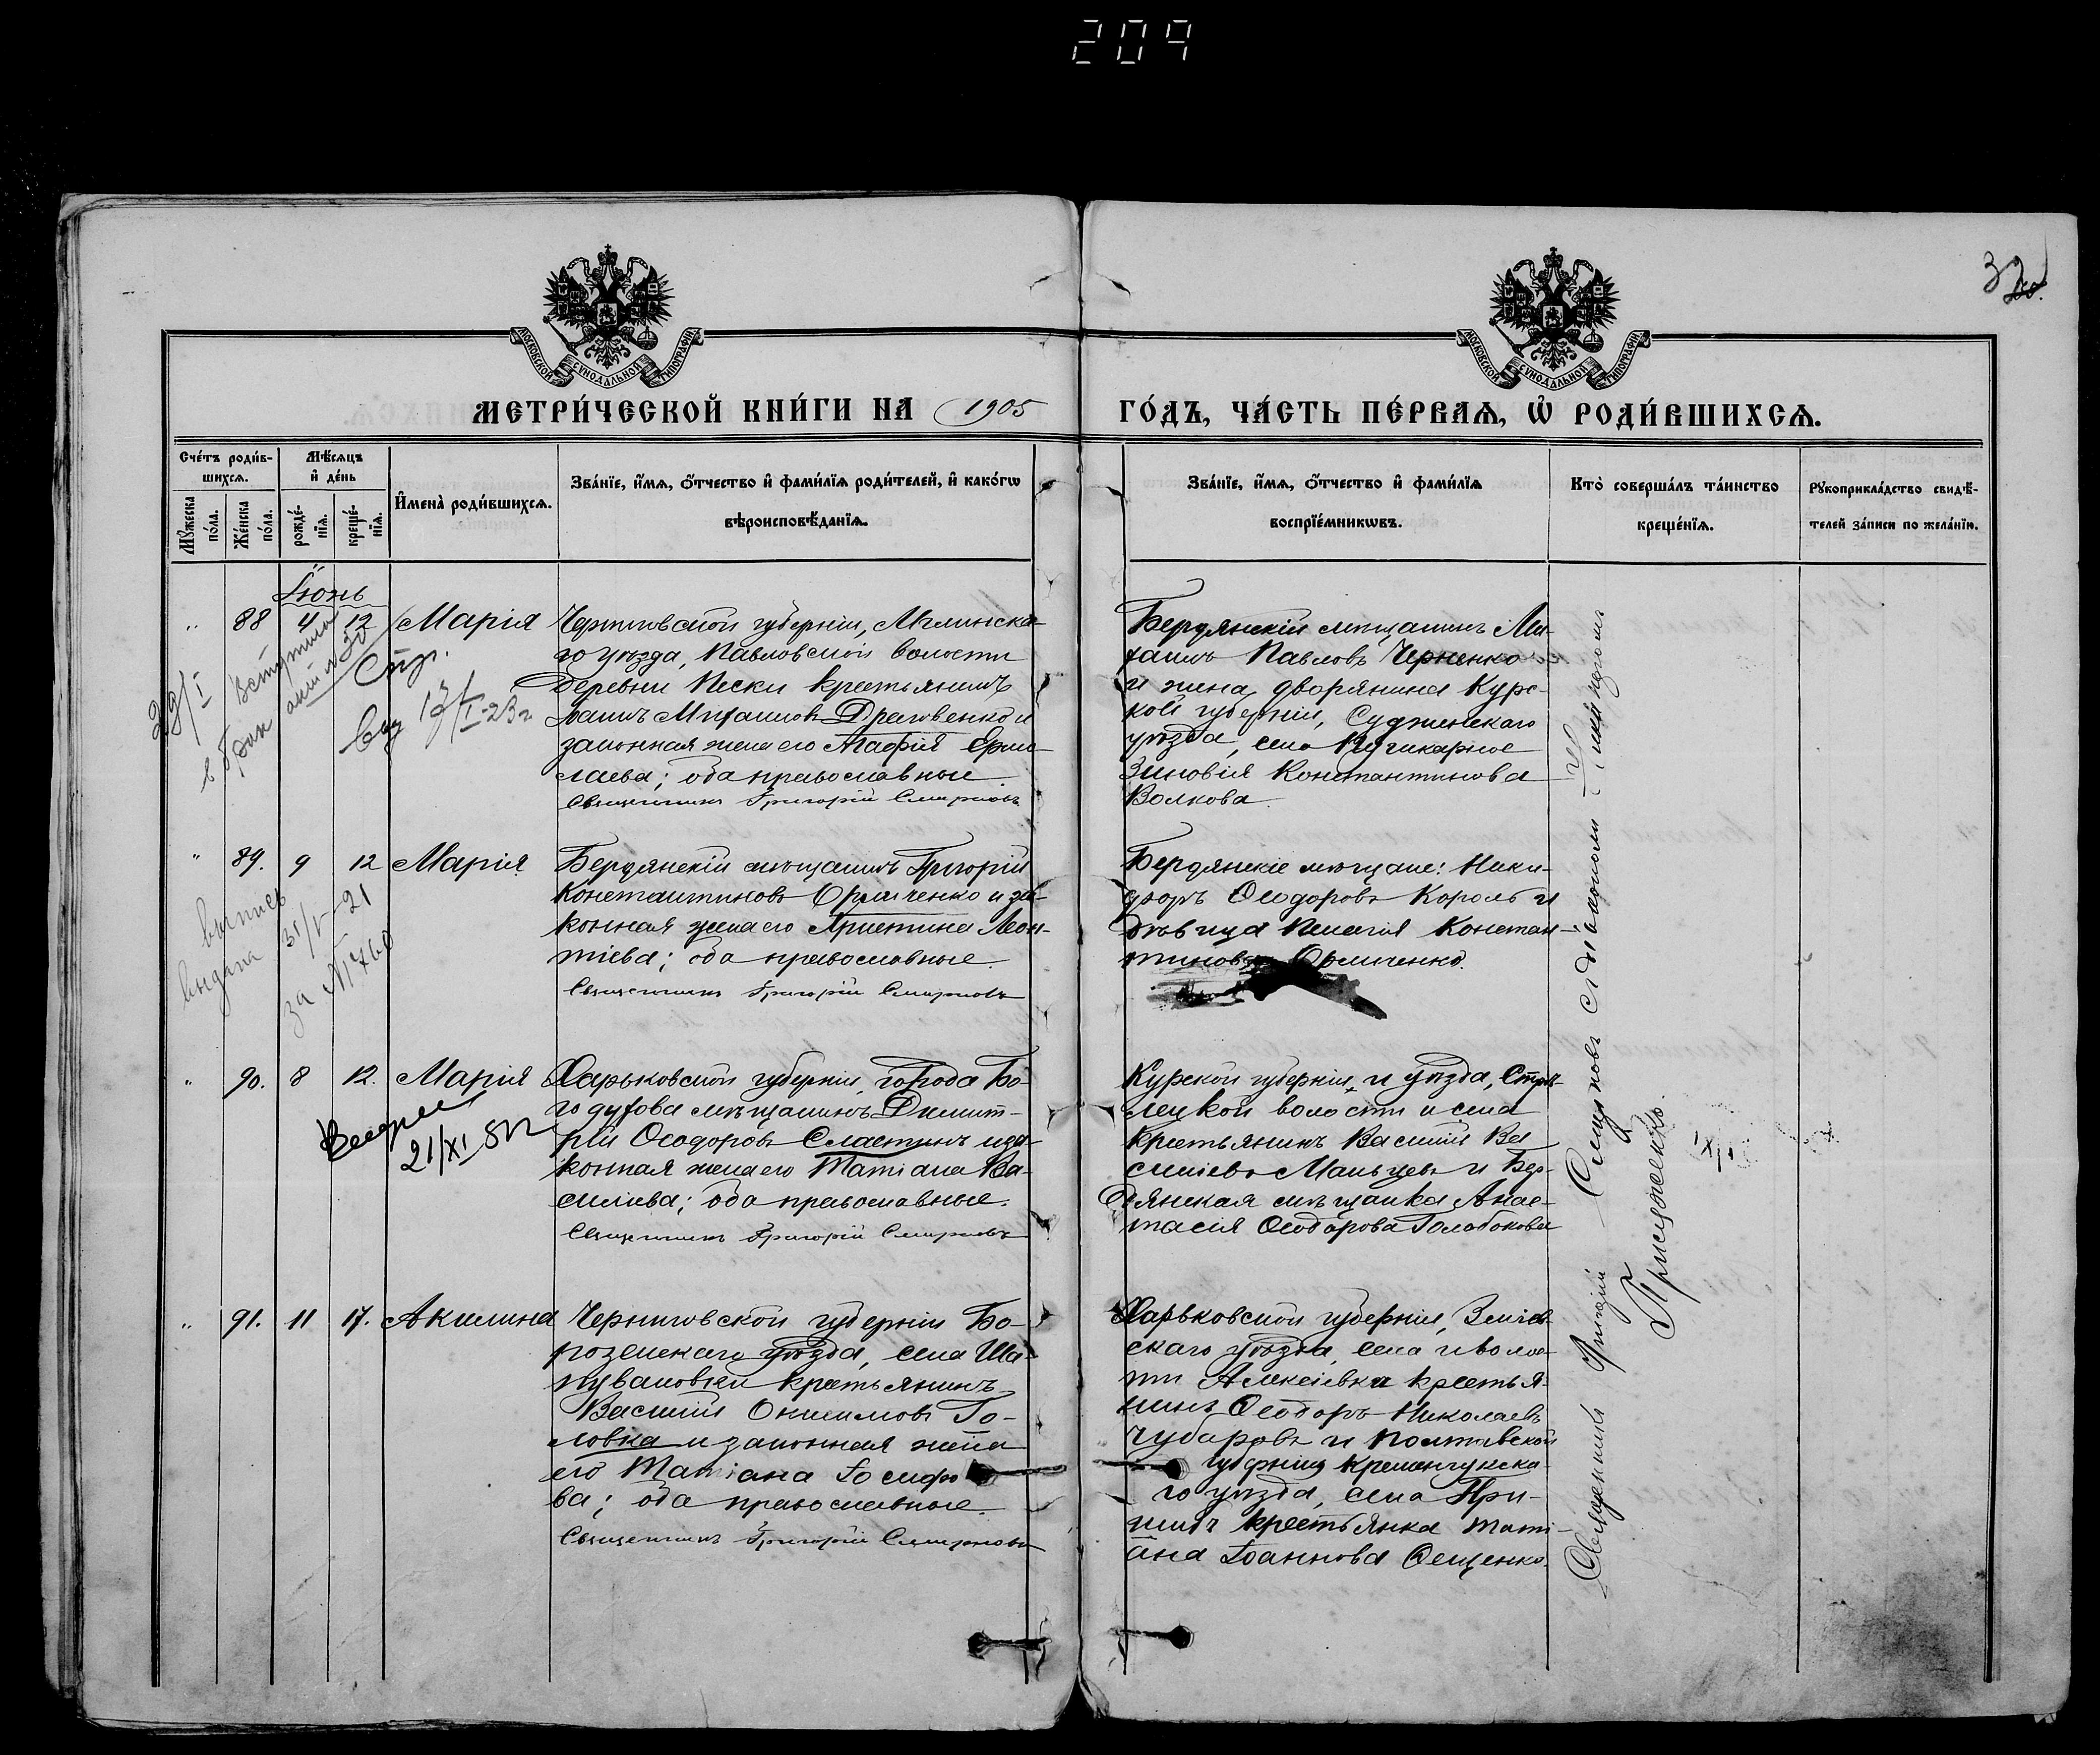 209
32
МОСКОВСКОЙ СУНОДАЛЬНОЙ ТИПОГРАФІИ
МОСКОВСКОЙ СУНОДАЛЬНОЙ ТИПОГРАФІИ
МЕТРИ́ЧЕСКОЙ КНИ́ГИ НА 1905 ГО́ДЪ, ЧА́СТЬ ПЕ́РВАѦ, Ѿ РОДИ́ВШИХСѦ.
Сче́тъ роди́в-
шихсѧ.
Мѣ́сѧцъ
и҆ де́нь
Мꙋ́жеска
по́ла.
Же́нска
по́ла.
рожде́-
нїѧ.
креще́-
нїѧ.
И҆мена̀ роди́вшихсѧ.
Зва́нїе, и҆́мѧ, ѻ҆́тчество и҆ фами́лїѧ роди́телей, и҆ како́гѡ
вѣроисповѣ́данїѧ.
Зва́нїе, и҆́мѧ, ѻ҆́тчество и҆ фами́лїѧ
воспрїе́мникѡвъ.
Кто̀ соверша́лъ та́инство
креще́нїѧ.
Рꙋкоприкла́дство свидѣ́-
телей за́писи по жела́нїю.
Іюнь
„ 88 4 12 Марія
Черниговской губерніи, Мглинска-
го уѣзда, Павловской волости
деревни Пески крестьянинъ
Іоаннъ Михаиловъ Драговенко и
законная жена его Агафія Ермо-
лаева; оба православные.
Священникъ Григорій Смирновъ
Бердянскій мѣщанинъ Ми-
хаилъ Павловъ Черненко
и жена дворянина Кур-
ской губерніи, Суджанскаго
уѣзда, села
Зиновія Константинова
Волкова.
29/I вступила
в брак
„ 89. 9 12 Марія
Бердянскій мѣщанинъ Григорій
Константиновъ Ормиченко и за-
конная жена его Христина Леон-
тіева; оба православные.
Священникъ Григорій Смирновъ
Бердянскіе мѣщане: Ники-
форъ Ѳеодоровъ Король и
дѣвица Пелагія Констан-
тинова Ормиченко.
выпись
выдана 31/V-21
за № 760
„ 90. 8 12. Марія
Харьковской губерніи, города Бо-
годухова мѣщанинъ Димит-
рій Ѳеодоровъ Сластинъ и за-
конная жена его Татіана Ва-
силіева; оба православные.
Священникъ Григорій Смирновъ
Курской губерніи и уѣзда, Стрѣ-
лецкой волости и села
крестьянинъ Василій Ва-
силіевъ Мальцевъ и Бер-
дянская мѣщанка Анас-
тасія Ѳеодорова Голобокова
21/XI
„ 91. 11 17. Акилина
Черниговской губерніи Бо-
розенскаго уѣзда, села Ша-
пуваловки крестьянинъ
Василій Онисимовъ Го-
ловка и законная жена
его Татіана Іосифо-
ва; оба православные.
Священникъ Григорій Смирновъ
Харьковской губерніи, Зміев-
скаго уѣзда, села и волос-
ти Алексіевки крестья-
нинъ Ѳеодоръ Николаевъ
Чубаровъ и Полтавской
губерніи Кременчугска-
го уѣзда, села
крестьянка Таті-
ана Іоаннова Ѳещенко.
Священникъ Григорій Смирновъ съ діакономъ